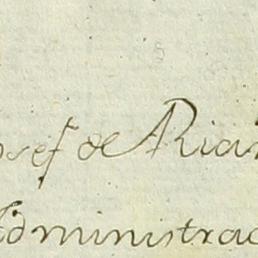 osef de Ria
Administrac